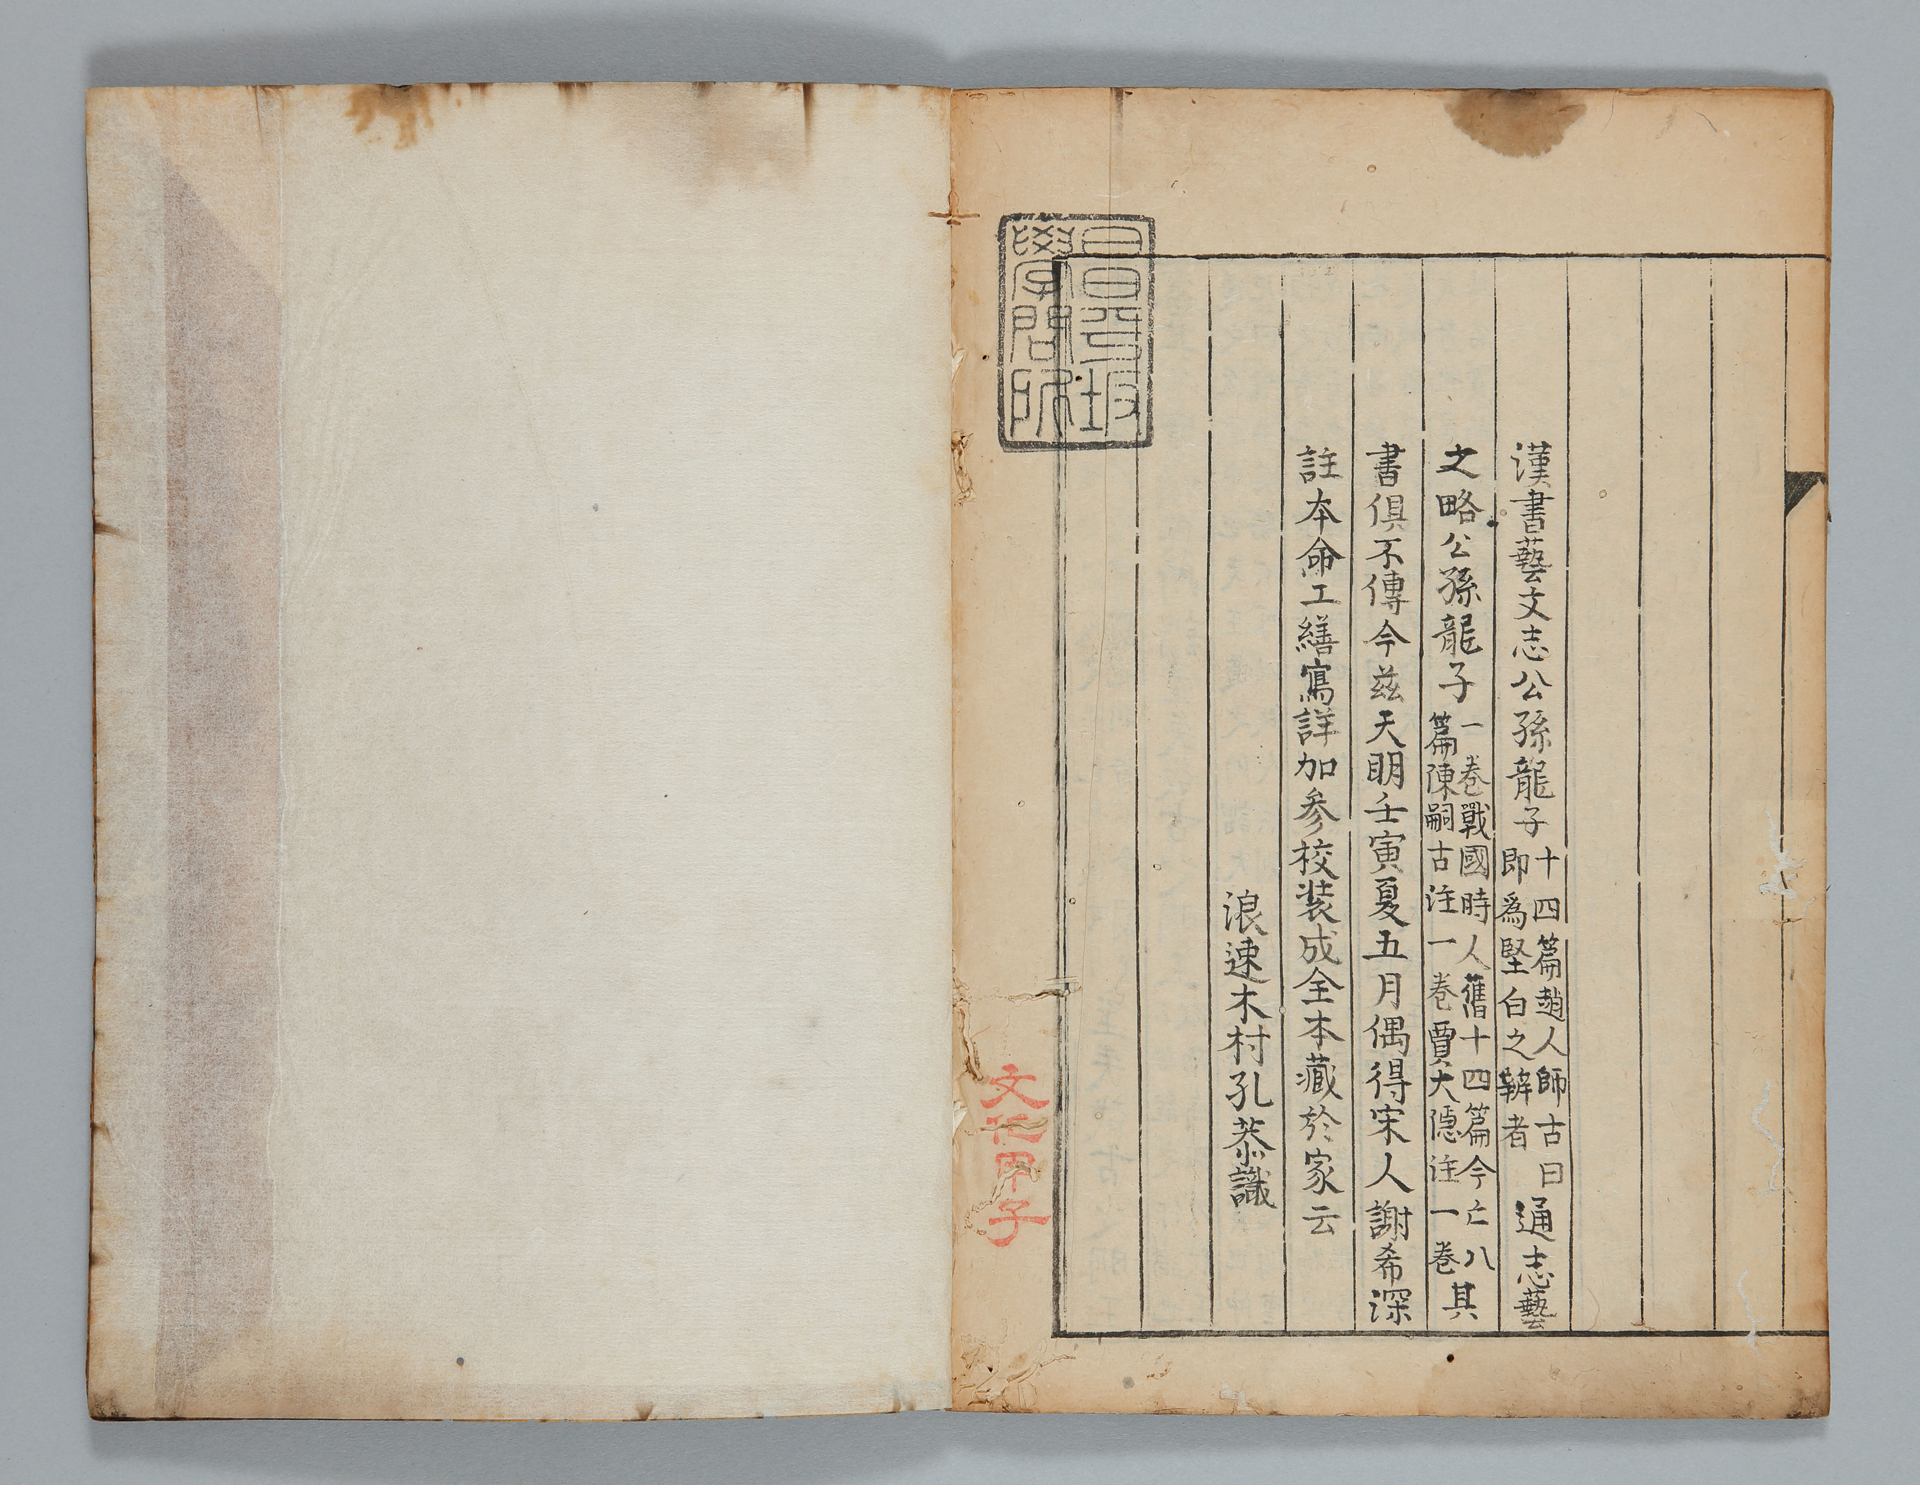 漢書藝文志公孫龍子十四篇趙人師古曰即爲堅白之辯者通志藝
文略公孫龍子一卷戰國時人舊十四篇今亡八篇陳嗣古注一卷賈大隱注一卷其
書俱不傳今茲天明壬寅夏五月偶得宋人謝希深
註本命工繕寫詳加參校裝成全本藏於家云
浪速木村孔恭識
昌平坂
學問所
文化甲子